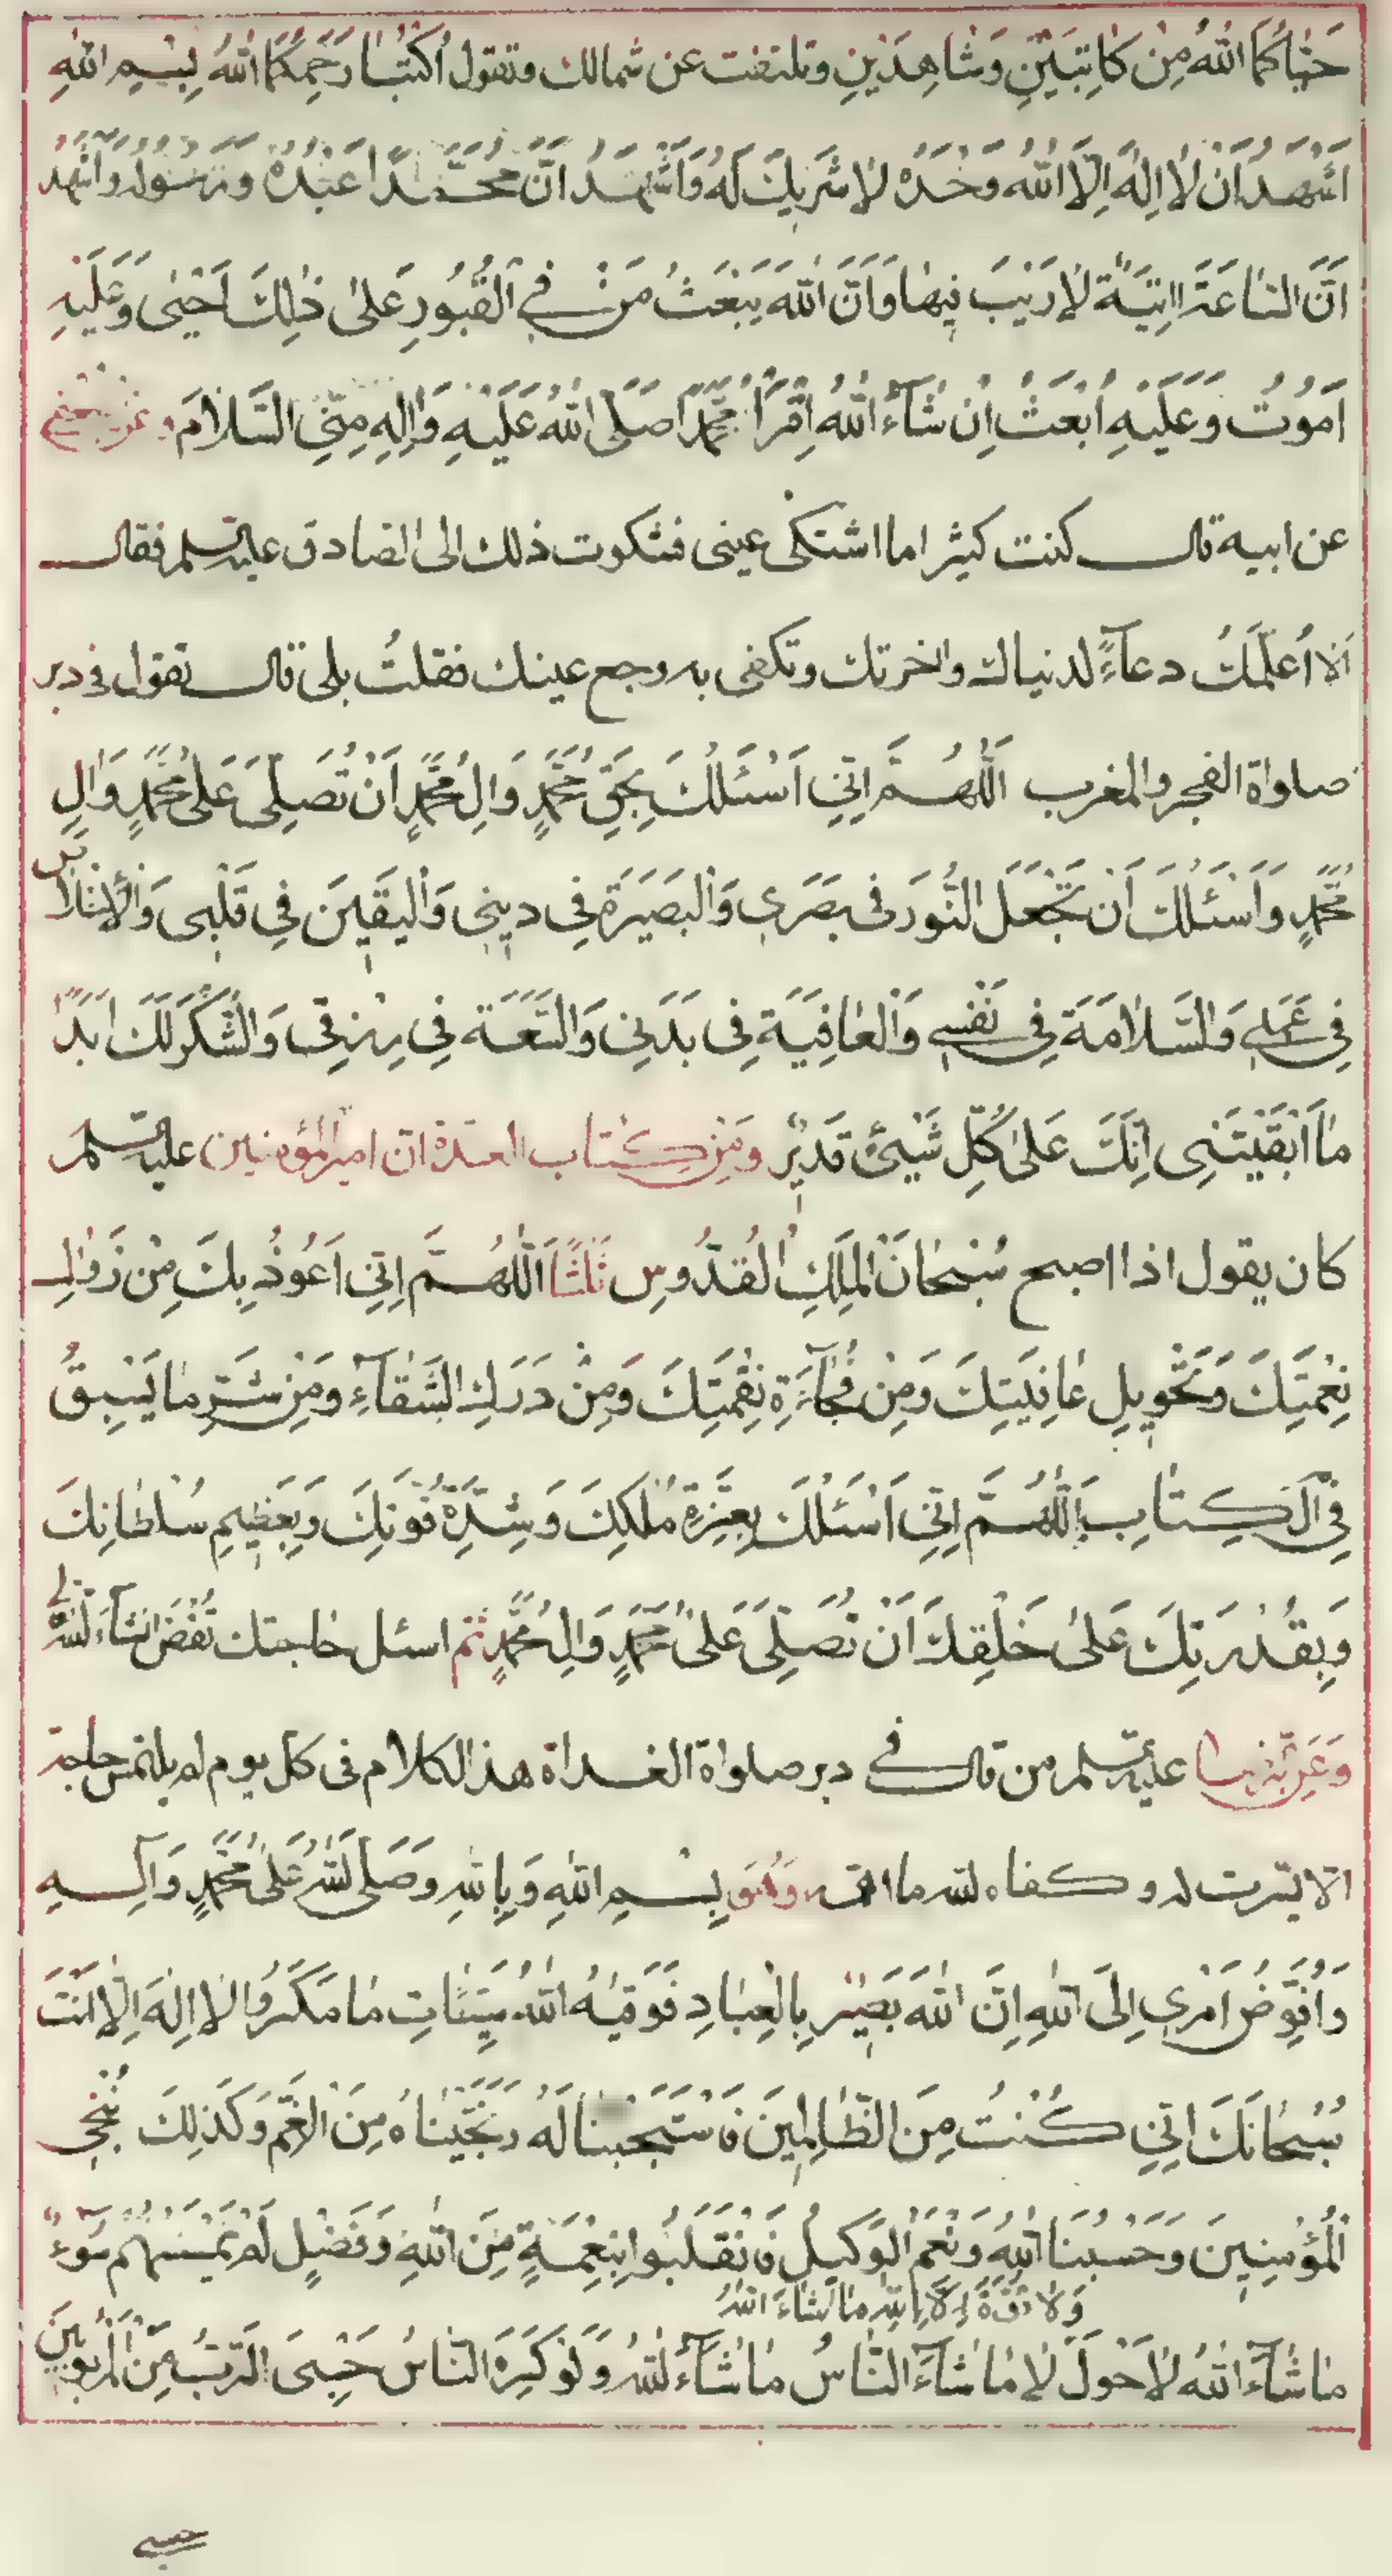 حَيَّاكُمَا اللهُ مِنْ كَاتِبَيْنِ وَشَاهِدَيْنِ وتلتفت عن شمالك وتقول اُكْتُبَا رَحِمَكُمَا اللهُ بِسْمِ اللهِ
اَشْهَدُ اَنْ لَا اِلٰهَ اِلَّا اللهُ وَحْدَهُ لَا شَرِيكَ لَهُ وَاَشْهَدُ اَنَّ مُحَمَّدًا عَبْدُهُ وَرَسُولُهُ وَاَشْهَدُ
اَنَّ السَّاعَةَ اٰتِيَةٌ لَا رَيْبَ فِيهَا وَاَنَّ اللهَ يَبْعَثُ مَنْ فِي الْقُبُورِ عَلىٰ ذٰلِكَ اَحْيىٰ وَعَلَيْهِ
اَمُوتُ وَعَلَيْهِ اُبْعَثُ اِنْ شَاءَ اللهُ اِقْرَأْ مُحَمَّدًا صَلَّى اللهُ عَلَيْهِ وَاٰلِهِ مِنِّي السَّلَامَ وعن
عن ابيه قال كنت كثيرا ما اشتكى عينى فشكوت ذلك الى الصادق عليه السلم فقال
الا اُعلّمكَ دعاءً لدنياك واخرتك وتكفى به وجع عينك فقلتُ بلى قال تقول فى دبر
صلواة الفجر والمغرب اَللّٰهُمَّ اِنِّي اَسْئَلُكَ بِحَقِّ مُحَمَّدٍ وَاٰلِ مُحَمَّدٍ اَنْ تُصَلِّيَ عَلىٰ مُحَمَّدٍ وَاٰلِ
مُحَمَّدٍ وَاَسْئَلُكَ اَنْ تَجْعَلَ النُّورَ فى بَصَرِي وَالْبَصِيرَةَ فِي دِينِي وَالْيَقِينَ فِي قَلْبِى وَالْاِخْلَاصَ
فِي عَمَلِي وَالسَّلَامَةَ فِي نَفْسِي وَالْعَافِيَةَ فِى بَدَنِى وَالسَّعَةَ فِي رِزْقِى وَالشُّكْرَ لَكَ اَبَدًا
مَا اَبْقَيْتَنِى اِنَّكَ عَلىٰ كُلِّ شَيْئٍ قَدِيرٌ ومن كتاب العدة ان امير المؤمنين عليه السلم
كان يقول اذا اصبح سُبْحَانَ الْمَلِكِ الْقُدُّوسِ ثَلٰثًا اَللّٰهُمَّ اِنِّي اَعُوذُ بِكَ مِنْ زَوَالِ
نِعْمَتِكَ وَتَحْوِيلِ عَافِيَتِكَ وَمِنْ فُجْاءَةِ نِقْمَتِكَ وَمِنْ دَرَكِ الشَّقَاءِ وَمِنْ شَرِّ مَا يَسْبِقُ
فِي الْكِتَابِ اَللّٰهُمَّ اِنِّي اَسْئَلُكَ بِعِزَّةِ مُلْكِكَ وَشِدَّةِ قُوَّتِكَ وَبِعَظِيمِ سُلْطَانِكَ
وَبِقُدْرَتِكَ عَلىٰ خَلْقِكَ اَنْ تُصَلِّيَ عَلىٰ مُحَمَّدٍ وَاٰلِ مُحَمَّدٍ ثم اسئل حاجتك تُقْضَ انشاء الله تعالى
عليه السلم من قال في دبر صلواة الغداة هذا الكلام فى كل يوم لم يلتمس حاجة
الا يسّرت له وكفاه الله ما وَهُوَ بِسْمِ اللهِ وَبِاللهِ وَصَلَّى اللهُ عَلىٰ مُحَمَّدٍ وَاٰلِهِ
وَاُفَوِّضُ اَمْرِي اِلَى اللهِ اِنَّ اللهَ بَصِيرٌ بِالْعِبَادِ فَوَقٰيهُ اللهُ سَيِّئَاتِ مَا مَكَرُوا لَا اِلٰهَ اِلَّا اَنْتَ
سُبْحَانَكَ اِنِّي كُنْتُ مِنَ الظَّالِمِينَ فَاسْتَجَبْنَا لَهُ وَنَجَّيْنَاهُ مِنَ الْغَمِّ وَكَذٰلِكَ نُنْجِي
الْمُؤْمِنِينَ وَحَسْبُنَا اللهُ وَنِعْمَ الْوَكِيلُ فَانْقَلَبُوا بِنِعْمَةٍ مِنَ اللهِ وَفَضْلٍ لَمْ يَمْسَسْهُمْ سُوءٌ
وَلَا قُوَّةَ اِلَّا بِاللهِ مَا شَاءَ اللهُ
مَا شَاءَ اللهُ لَا حَوْلَ لَا مَا شَاءَ النَّاسُ مَا شَاءَ اللهُ وَلَوْ كَرِهَ النَّاسُ حَسْبِىَ الرَّبُّ مِنَ الْمَرْبُوبِينَ
حسبي